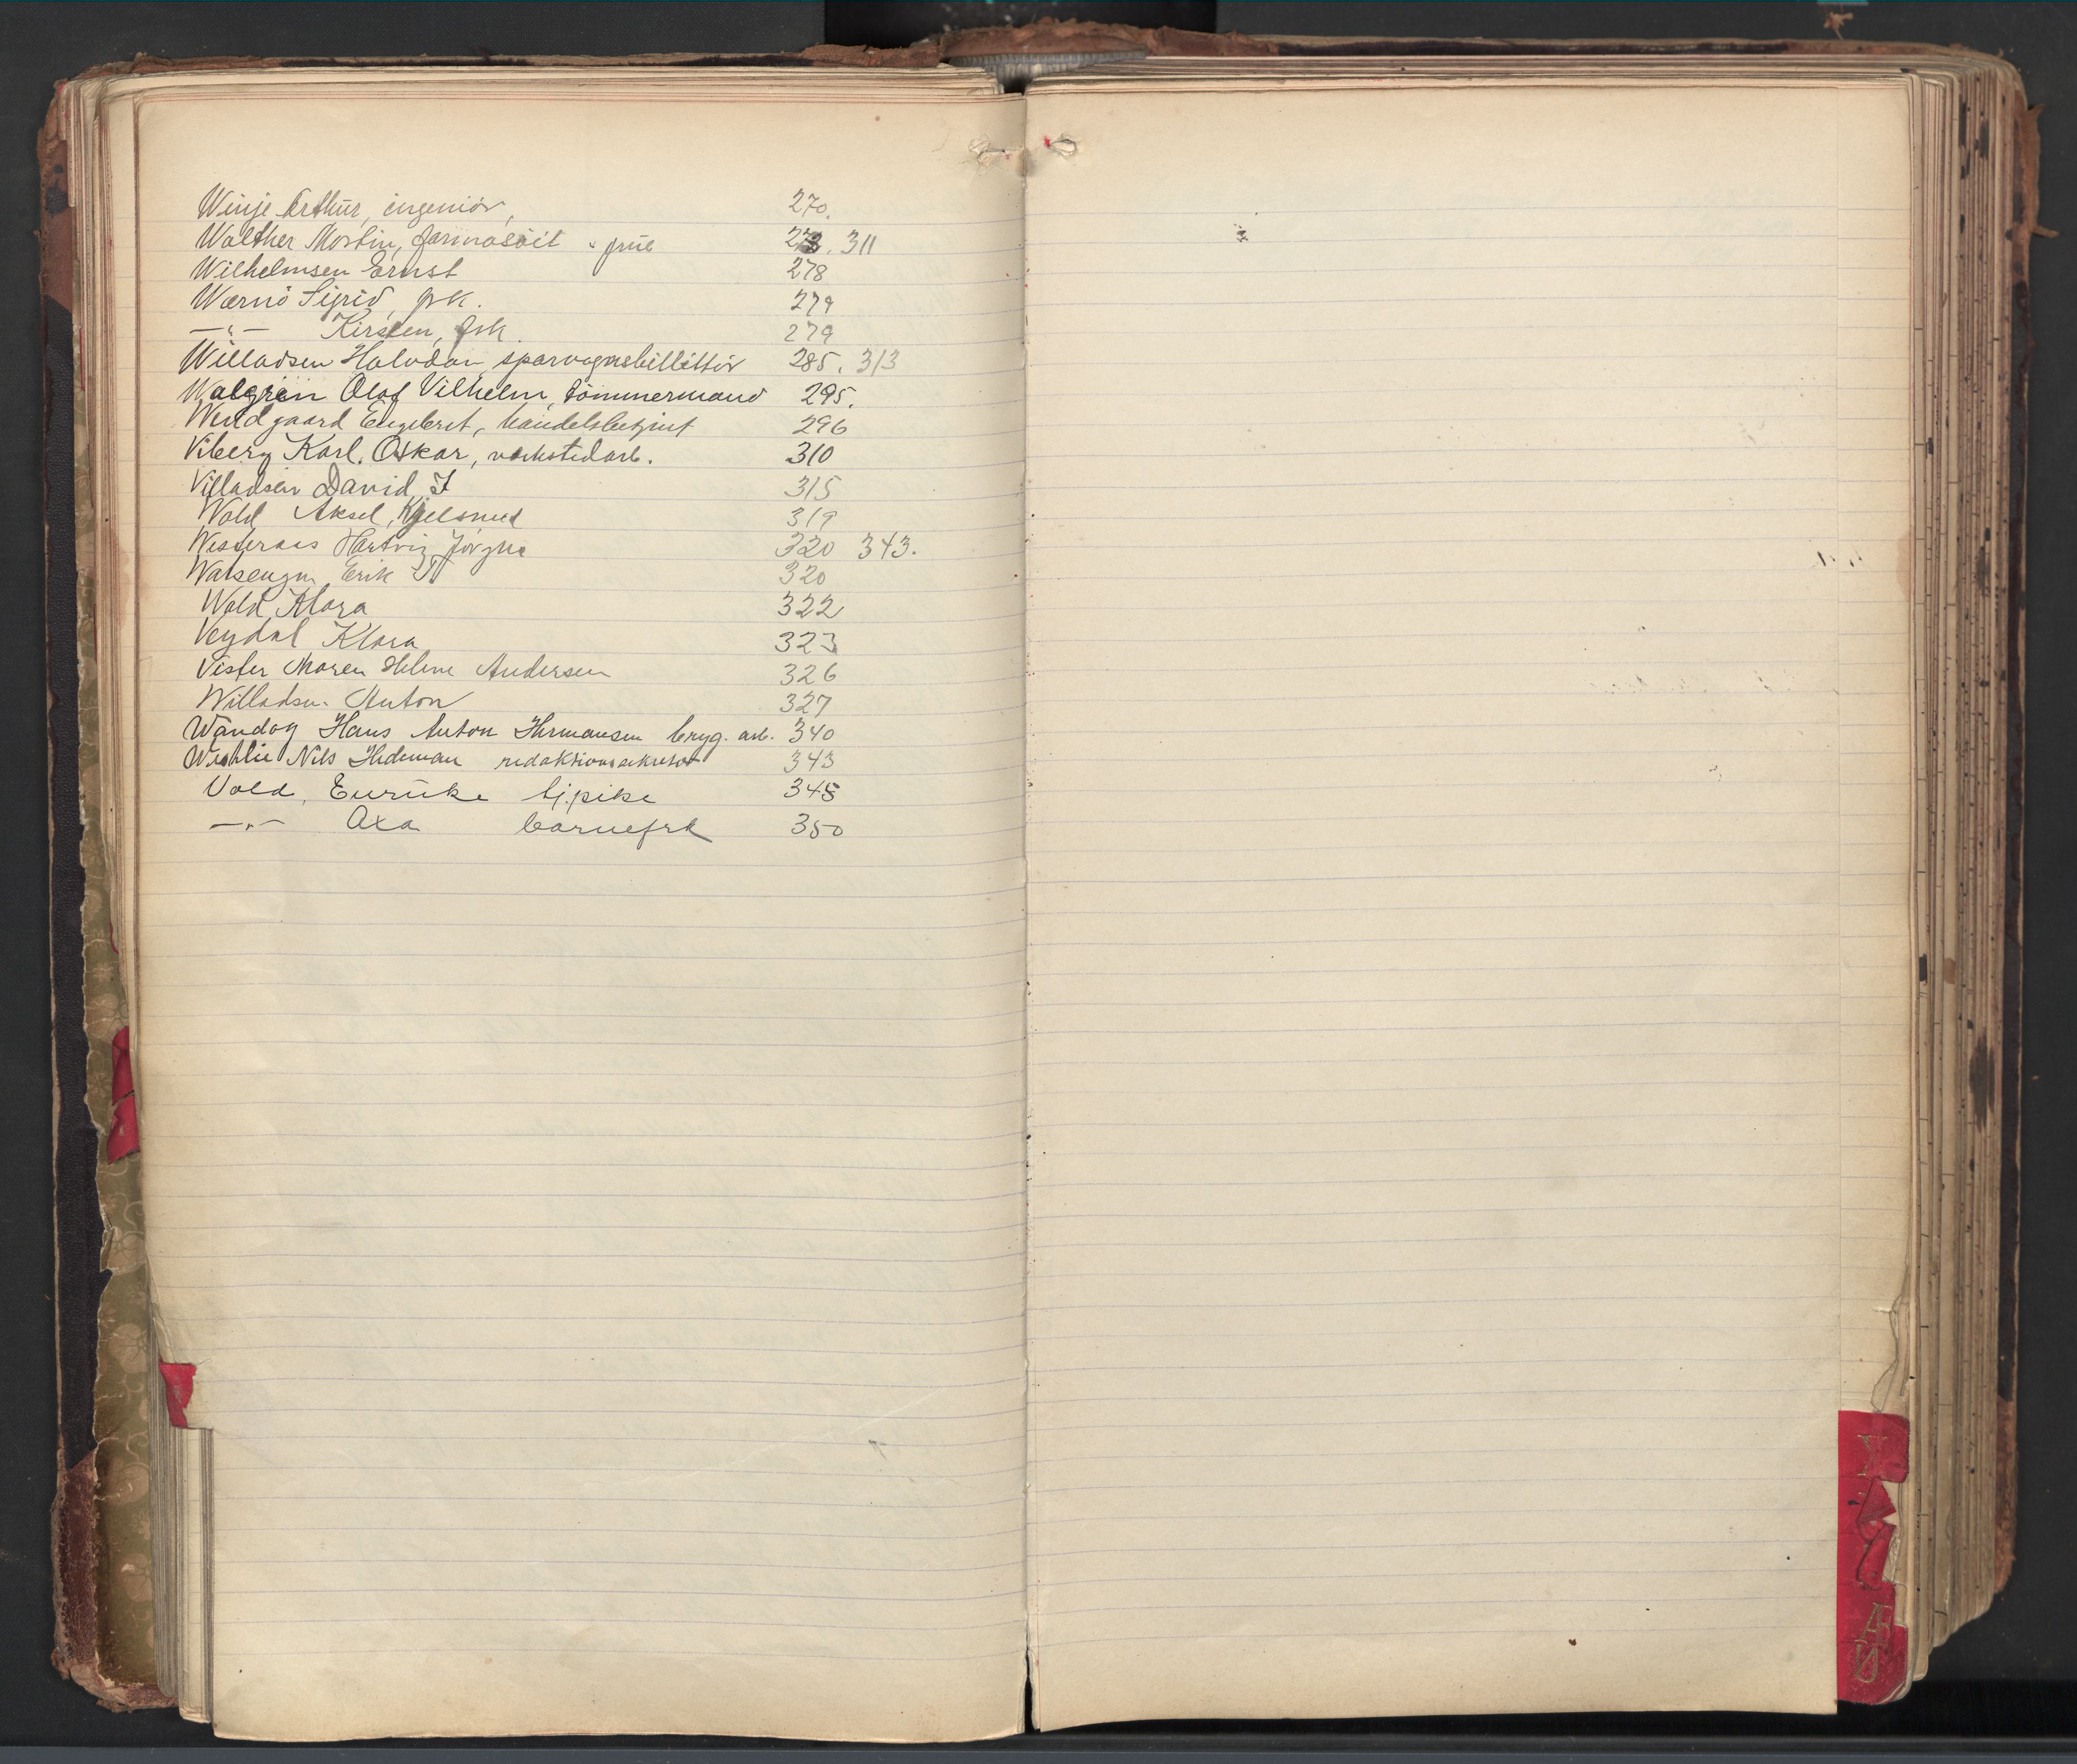 Winje Arthur, ingeniør, 270.
Walther Martin, farmasöit & frue 273. 311
Wilhelmsen Ernst 278
Wærnö Sigrid, frk. 279
—"— Kirsten, frk. 279
Willadsen Halvdan, sporvognsbilletör 285. 313
Walgren Olof Vilhelm, tömmermand 295.
Wendgaard Engebret, handelsbetjent 296
Viberg Karl. Oskar, verkstedarb. 310
Villadsen David, I 315
Wold Aksel, Kjelsrud 319
Westeraas Hartvig Jörgne 320 343.
Erik 320
Wold Klara 322
Veydal Klara 323
Vister Maren Helene Andersen 326
Willadsen Anton 327
Wandog Hans Anton Hermansen bryg. arb. 340
Nils Hedeman redaktionssekretær 343
Vold, Enrike tj.pike 345
—"— Axa barnefrk 350
Æ
Ø